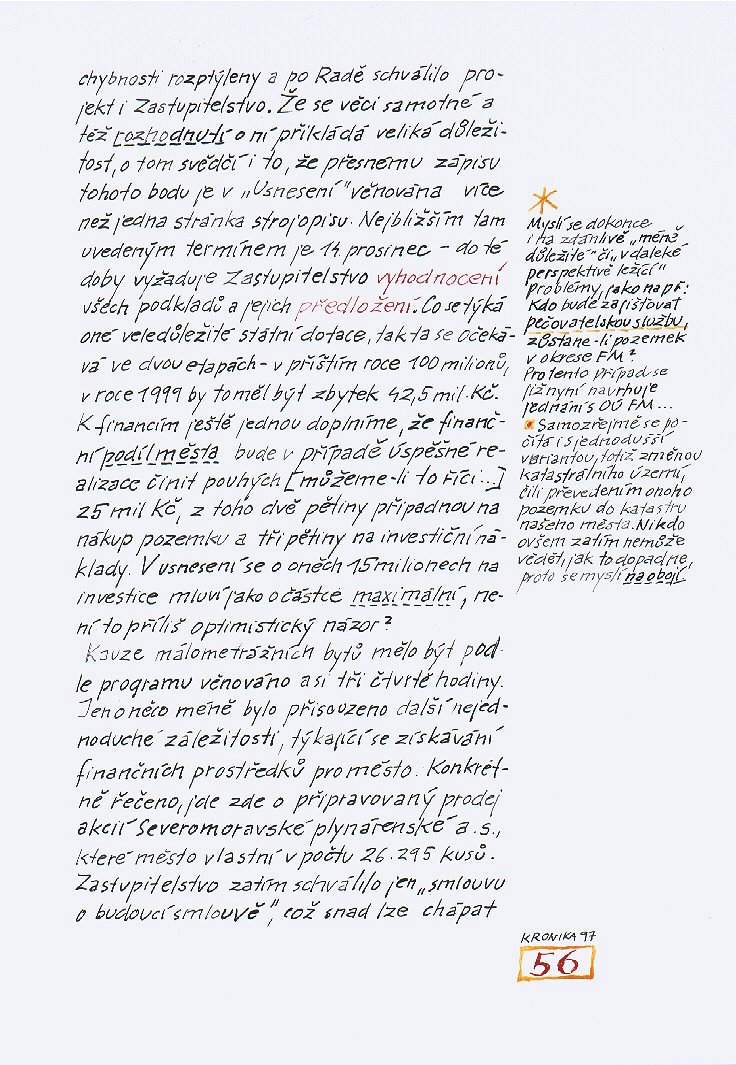 chybnosti rozptýleny a po Radě schválilo pro-
jekt i Zastupitelstvo. Že se věci samotné a
též rozhodnutí o ní přikládá veliká důleži-
tost, o tom svědčí i to, že přesnému zápisu
tohoto bodu je v „Usnesení" věnována více
než jedna stránka strojopisu. Nejbližším tam
uvedeným termínem je 14. prosinec – do té
doby vyžaduje Zastupitelstvo vyhodnocení
všech podkladů a jejich předložení. Co se týká
oné veledůležité státní dotace, tak ta se očeká-
vá ve dvou etapách – v příštím roce 100 milionů,
v roce 1999 by to měl být zbytek 42,5 mil. Kč.
K financím ještě jednou doplníme, že finanč-
ní podíl města bude v případě úspěšné re-
alizace činit pouhých [můžeme-li to říci...]
25 mil Kč, z toho dvě pětiny připadnou na
nákup pozemku a tři pětiny na investiční ná-
klady. V usnesení se o oněch 15 milionech na
investice mluví jako o částce maximální, ne-
ní to příliš optimistický názor?
Kauze málometrážních bytů mělo být pod-
le programu věnováno asi tři čtvrtě hodiny.
Jen o něco méně bylo přisouzeno další nejed-
noduché záležitosti, týkající se získávání
finančních prostředků pro město. Konkrét-
ně řečeno, jde zde o připravovaný prodej
akcií Severomoravské plynárenské a.s.,
které město vlastní v počtu 26.295 kusů.
Zastupitelstvo zatím schválilo jen „smlouvu
o budoucí smlouvě", což snad lze chápat
*
Myslí se dokonce
i na zdánlivě „méně
důležité" či „v daleké
perspektivě ležící"
problémy, jako např:
Kdo bude zajišťovat
pečovatelskou službu,
zůstane-li pozemek
v okrese FM?
Pro tento případ se
již nyní navrhuje
jednání s OÚ FM...
Samozřejmě se po-
čítá i s jednodušší
variantou, totiž změnou
katastrálního území,
čili převedením onoho
pozemku do katastru
našeho města. Nikdo
ovšem zatím nemůže
vědět, jak to dopadne,
proto se myslí na obojí.
KRONIKA 97
56